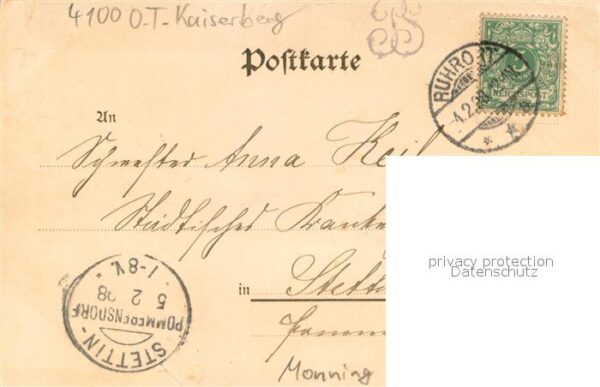 4100 O.T-Kaiserberg
Postkarte
RUHRORT
4.2.98
5
REICHSPOST
An
Schwester Anna Keil
Städtisches Kranke
in Stett
Pomm
Monning
STETTIN-
POMMERENSDORF
5 2 98
1-8V.
privacy protection
Datenschutz